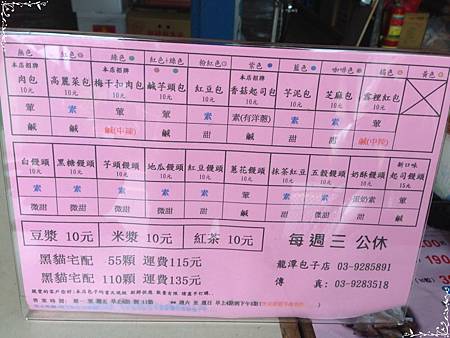 無色 紅色 綠色 紅色+綠色 粉紅色 紫色 藍色 咖啡色 橘色 黃色
本店招牌 本店招牌 本店招牌
肉包 高麗菜包 梅干扣肉包 鹹芋頭包 紅豆包 香菇起司包 芋泥包 芝麻包 霧裡紅包
10元 10元 10元 10元 10元 10元 10元 10元 10元
葷 素 葷 葷 素 素(有洋蔥) 素 素 葷
鹹 鹹 鹹(中辣) 鹹 甜 鹹 甜 甜 鹹(中辣)
新口味
白饅頭 黑糖饅頭 芋頭饅頭 地瓜饅頭 紅豆饅頭 蔥花饅頭 抹茶紅豆 五穀饅頭 奶酥饅頭 起司饅頭
10元 10元 10元 10元 10元 10元 10元 10元 10元 15元
素 素 素 素 素 葷 素 素 蛋奶素
微甜 微甜 微甜 微甜 微甜 鹹 甜 微甜 甜
豆漿 10元 米漿 10元 紅茶 10元 每週三 公休
黑貓宅配 55顆 運費115元 龍潭包子店 03-9285891
黑貓宅配 110顆 運費135元 傳 真: 03-9283518